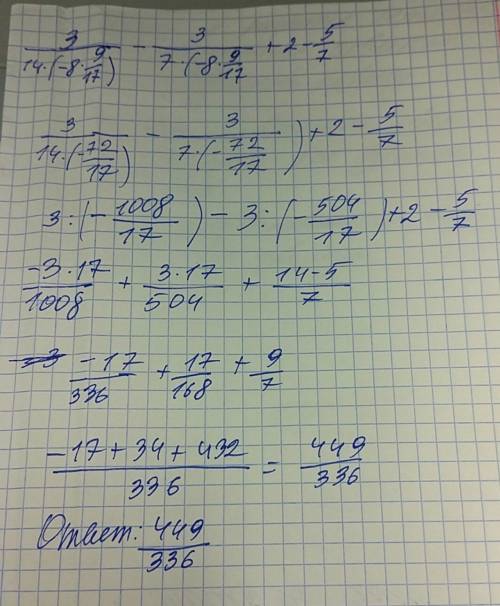 3/(14·(-8·9/17)) - 3/(7·(-8·9/17) + 2 - 5/7
3/(14·(-72/17)) - 3/(7(-72/17)) + 2 - 5/7
3:(-1008/17) - 3:(-504/17) + 2 - 5/7
-3·17/1008 + 3·17/504 + 14-5/7
-17/336 + 17/168 + 9/7
-17+34+432/336 = 449/336
Ответ: 449/336